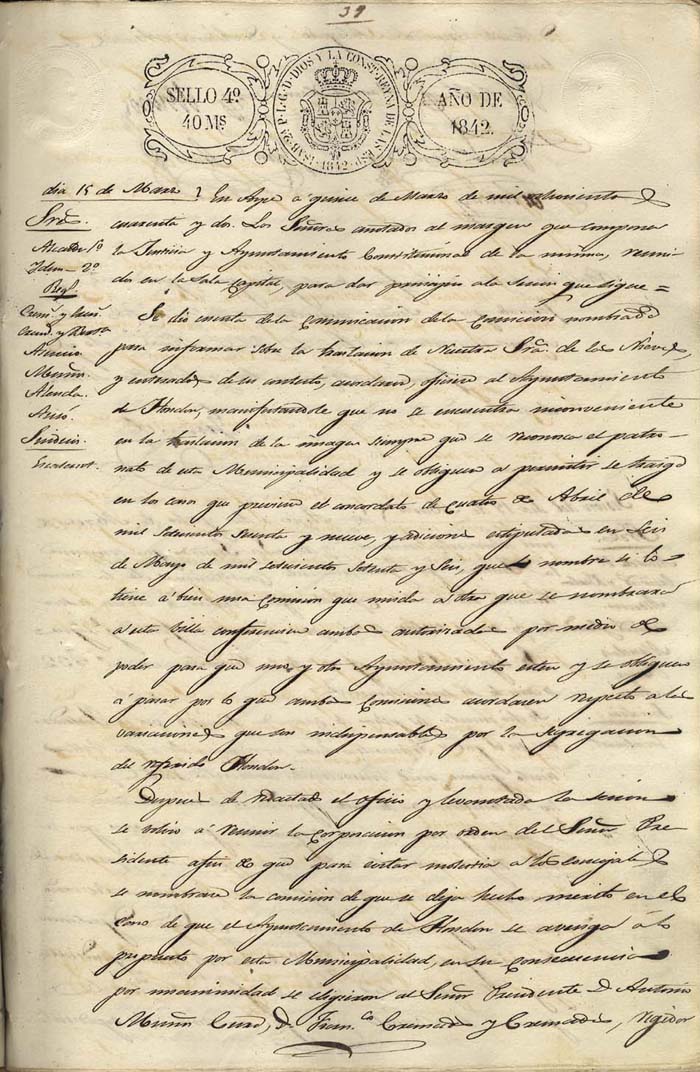 39
SELLO 4º
40 MS
ISAB. 2ª P. L. G. D. DIOS Y LA CONST. REYNA DE LAS ESP.
1842
AÑO DE
1842.
dia 15 de Marzo
Sres.
Alcalde 1º
Idem 2º
Regs.
Almoda.
Sindico.
En Aspe á quince de Marzo de mil ochocientos
cuarenta y dos. Los Señores anotados al margen que componen
la Justicia y Ayuntamiento Constitucional de la misma, reuni-
dos en la Sala Capitular, para dar principio á la sesion que sigue =
Se dio cuenta de la Comunicacion de la Comision nombrada
para informar sobre la traslacion de Nuestra Sra. de las Nieves,
y enterados de su contesto, acordaron, oficiese al Ayuntamiento
de Hondon, manifestandole que no se encuentra inconveniente
en la traslacion de la imagen siempre que se reconosca el patro-
nato de esta Municipalidad y se obliguen á permitir se traiga
en los casos que previene el concordato de cuatro de Abril de
mil setecientos sesenta y nueve, y adiciones estipuladas en seis
de Mayo de mil setecientos setenta y seis, que se nombre si lo
tiene á bien una Comision que unida á otra que se nombrara
en esta Villa conferencien ambas autorizadas por medio de
poder para que uno y otro Ayuntamiento esten y se obliguen
á pasar por lo que ambas Comisiones acordaren respeto á las
variaciones que son indispensables por la segregacion
del referido Hondon.
Despues de redactado el oficio y levantada la sesion
se volvio á reunir la Corporacion por orden del Señor Pre-
sidente afin de que para evitar molestia á los concejales
se nombrase la comision de que se deja hecho merito en el
caso de que el Ayuntamiento de Hondon se avenga á lo
propuesto por esta Municipalidad, en su consecuencia
por unanimidad se eligieron al Señor Presidente D. Antonio
D. Franco. Cremades y Cremades, regidor